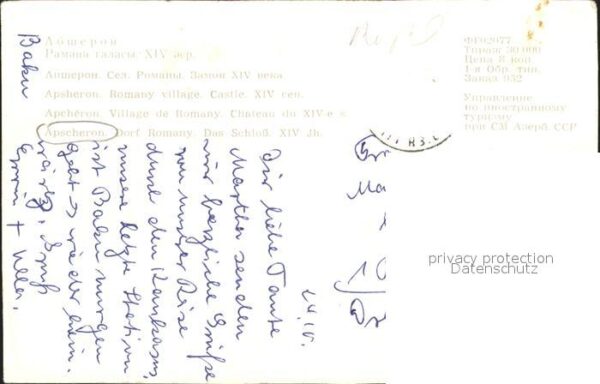 Абшерон
Рамана галасы. XIV әср.
Апшерон. Сел. Романы. Замок XIV века
Apsheron. Romany village. Castle. XIV cen.
Apchéron. Village de Romany. Château du XIV-e s.
Apscheron. Dorf Romany. Das Schloß. XIV Jh.
ФГ02077.
Тираж 30 000
Цена 8 коп.
1-я Обр. тип.
Заказ 932
Управление
по иностранному
туризму
при СМ Азерб. ССР
privacy protection
Datenschutz
Baku
14.10.
Dir liebe Tante
Martha senden
wir herzliche Grüße
von unserer Reise
durch den Kaukasus,
unsere letzte Station
ist Baku morgen
geht es wieder heim-
wärts. Gruß
Erwin + Ulla.